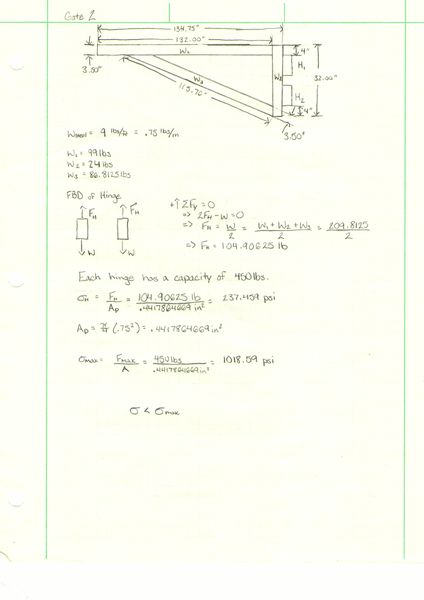 Gate 2
134.75"
132.00"
W₁
4"
H₁
3.50"
W₃
W₂
32.00"
115.76"
H₂
4"
3.50"
Wsteel = 9 lb/ft = .75 lb/in
W₁ = 99 lbs
W₂ = 24 lbs
W₃ = 86.8125 lbs
FBD of Hinge
F_H F_H
W W
+↑ ΣFy = 0
=> 2F_H - W = 0
=> F_H = W/2 = (W₁ + W₂ + W₃)/2 = 209.8125/2
=> F_H = 104.90625 lb
Each hinge has a capacity of 450 lbs.
σ_H = F_H/A_p = 104.90625 lb/.4417864669 in² = 237.459 psi
A_p = π/4 (.75²) = .4417864669 in²
σmax = Fmax/A = 450 lbs/.4417864669 in² = 1018.59 psi
σ < σmax